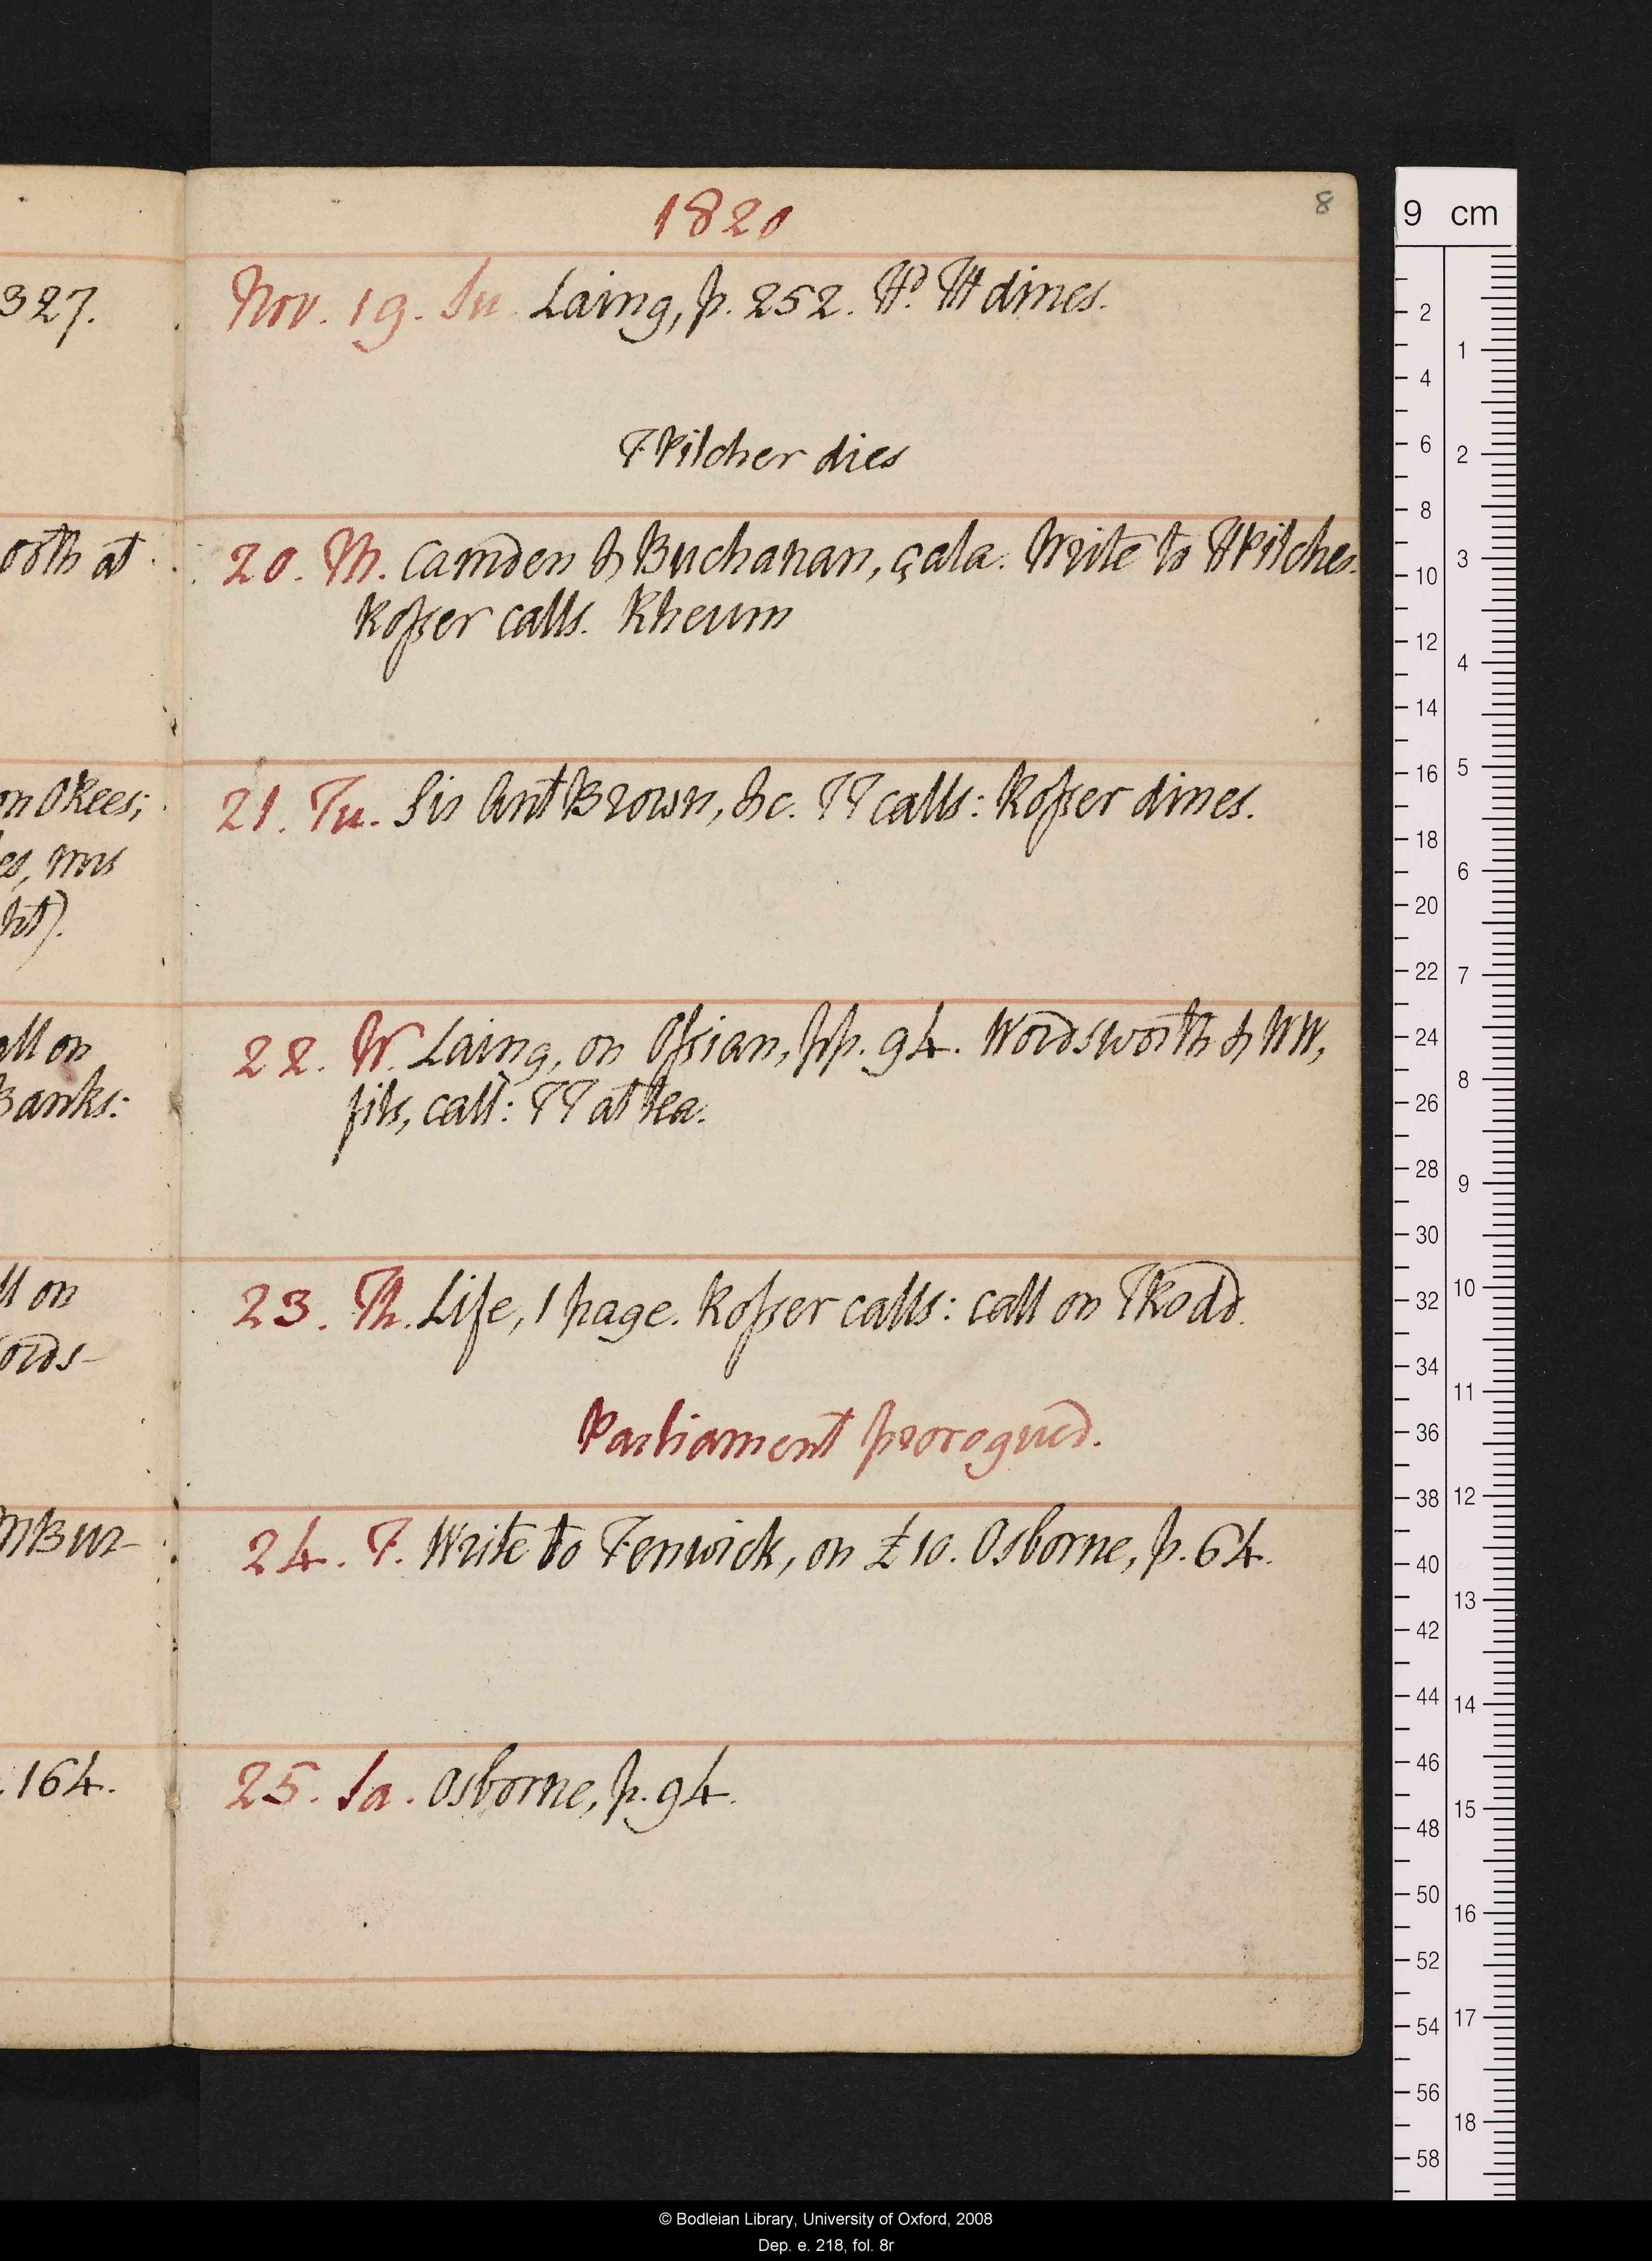 8
1820
327.
Nov. 19. Su. Laing, p. 252. Hd. TH dines.
F Pilcher dies
osth at
20. M. Camden & Buchanan, çala. Write to H Pilcher.
Rosser calls. Rheum
on Okees;
21. Tu. Sir Ant Brown, &c. TT calls: Rosser dines.
es, mrs
ht).
all on
22. W. Laing, on Ossian, pp. 94. Wordsworth & WW,
Banks:
fils, call: TT at tea.
ll on
23. Th. Life, 1 page. Rosser calls: call on T Rodd.
ords-
Parliament prorogued.
MBur-
24. F. Write to Fenwick, on £10. Osborne, p. 64.
. 164.
25. Sa. Osborne, p. 94.
9 cm
2
4
6
8
10
12
14
16
18
20
22
24
26
28
30
32
34
36
38
40
42
44
46
48
50
52
54
56
58
1
2
3
4
5
6
7
8
9
10
11
12
13
14
15
16
17
18
© Bodleian Library, University of Oxford, 2008
Dep. e. 218, fol. 8r